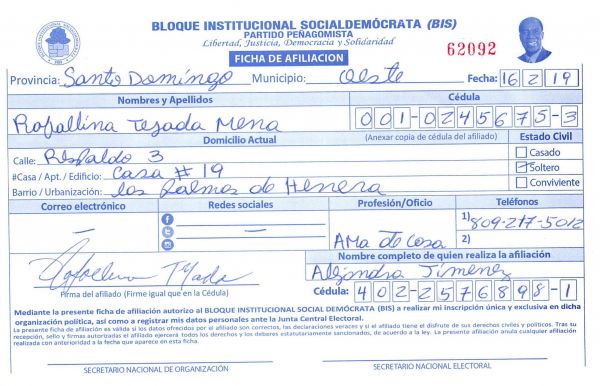 BLOQUE INSTITUCIONAL SOCIALDEMÓCRATA (BIS)
PARTIDO PEÑAGOMISTA
Libertad, Justicia, Democracia y Solidaridad
FICHA DE AFILIACION
62092
Provincia: Santo Domingo Municipio: Oeste Fecha: 16 2 19
Nombres y Apellidos Cédula
Rafallina Tejada Mena 001-0245675-3
Domicilio Actual (Anexar copia de cédula del afiliado) Estado Civil
Calle: Respaldo 3 Casado
#Casa / Apt. / Edificio: Casa #19 Soltero
Barrio / Urbanización: las Palmas de Herrera Conviviente
Correo electrónico Redes sociales Profesión/Oficio Teléfonos
— — Ama de casa 1) 809-217-5012
2)
Nombre completo de quien realiza la afiliación
Alejandra Jimenez
Firma del afiliado (Firme igual que en la Cédula) Cédula: 402-2576898-1
Mediante la presente ficha de afiliación autorizo al BLOQUE INSTITUCIONAL SOCIAL DEMÓCRATA (BIS) a realizar mi inscripción única y exclusiva en dicha
organización política, así como a registrar mis datos personales ante la Junta Central Electoral.
La presente ficha de afiliación es válida si los datos ofrecidos por el afiliado son correctos, las declaraciones veraces y si el afiliado tiene el disfrute de sus derechos civiles y políticos. Tras su
recepción, sello y firmas autorizadas el afiliado ejercerá todos los derechos y los deberes estatutariamente sancionados, de acuerdo a la ley. La presente afiliación anula cualquier afiliación
realizada con anterioridad a la fecha que aparece en esta ficha.
SECRETARIO NACIONAL DE ORGANIZACIÓN SECRETARIO NACIONAL ELECTORAL